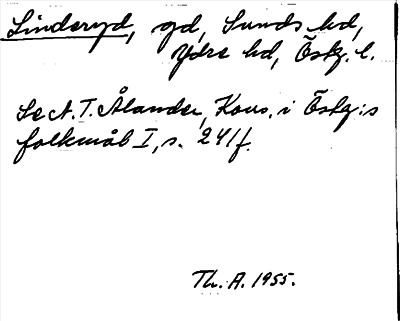 Linderyd, gd, Sunds hd,
Ydre hd, Östg. l.
Se A. T. Ålander, Kons. i Östg:s
folkmål I, s. 241f.
Th. A. 1955.